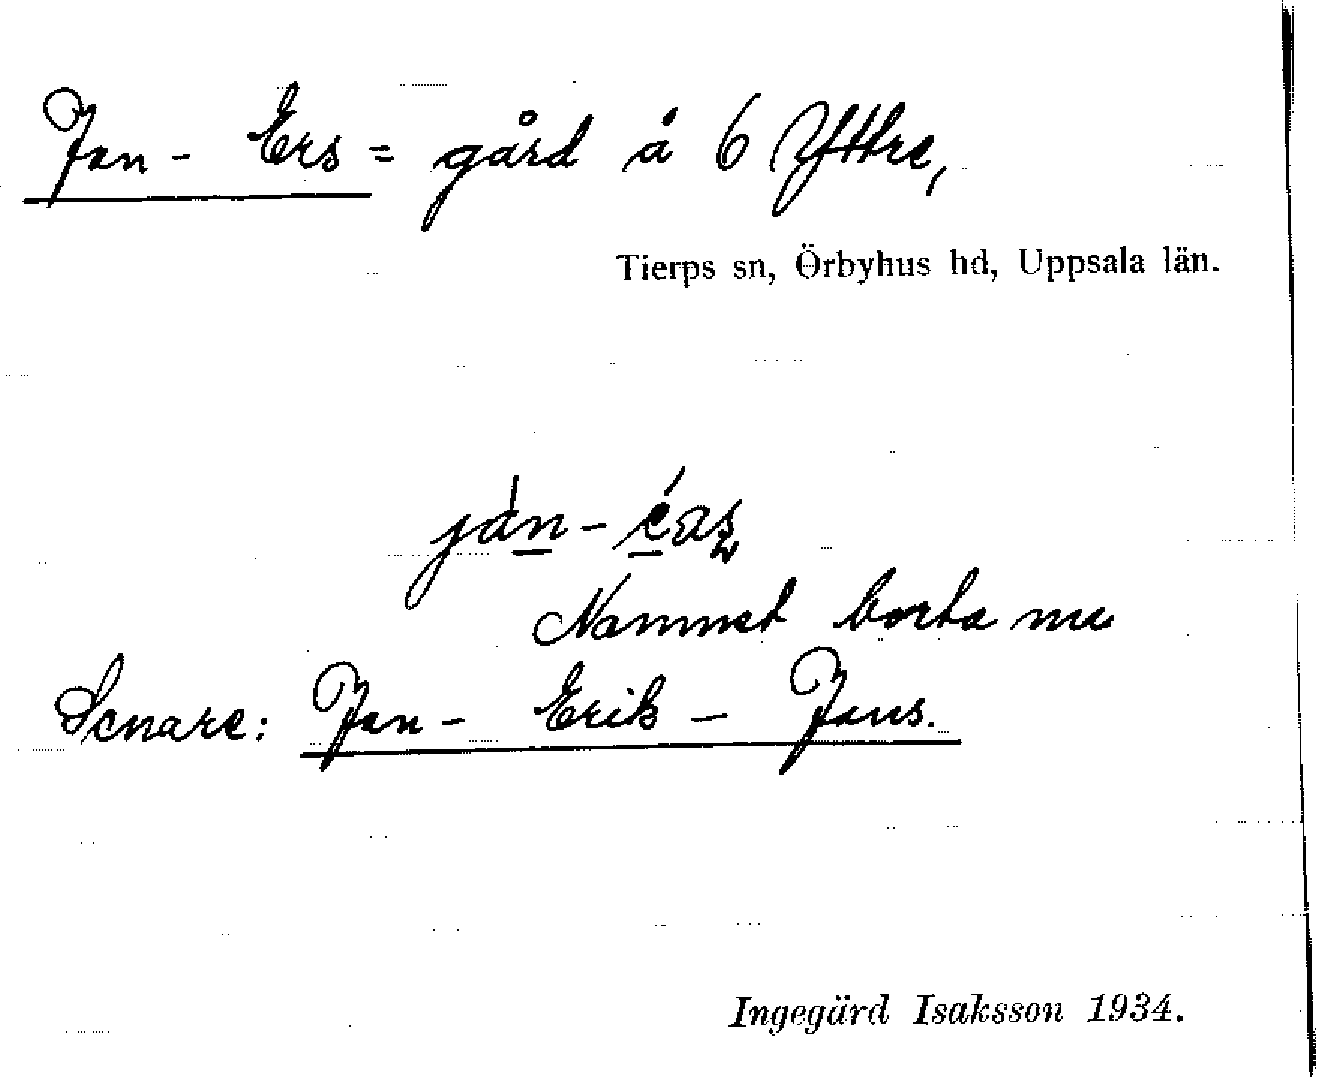 Jan - Ers = gård å 6 Yttre,
Tierps sn, Örbyhus hd, Uppsala län.
Namnet borta nu
Senare: Jan - Erik - Jans.
Ingegärd Isaksson 1934.